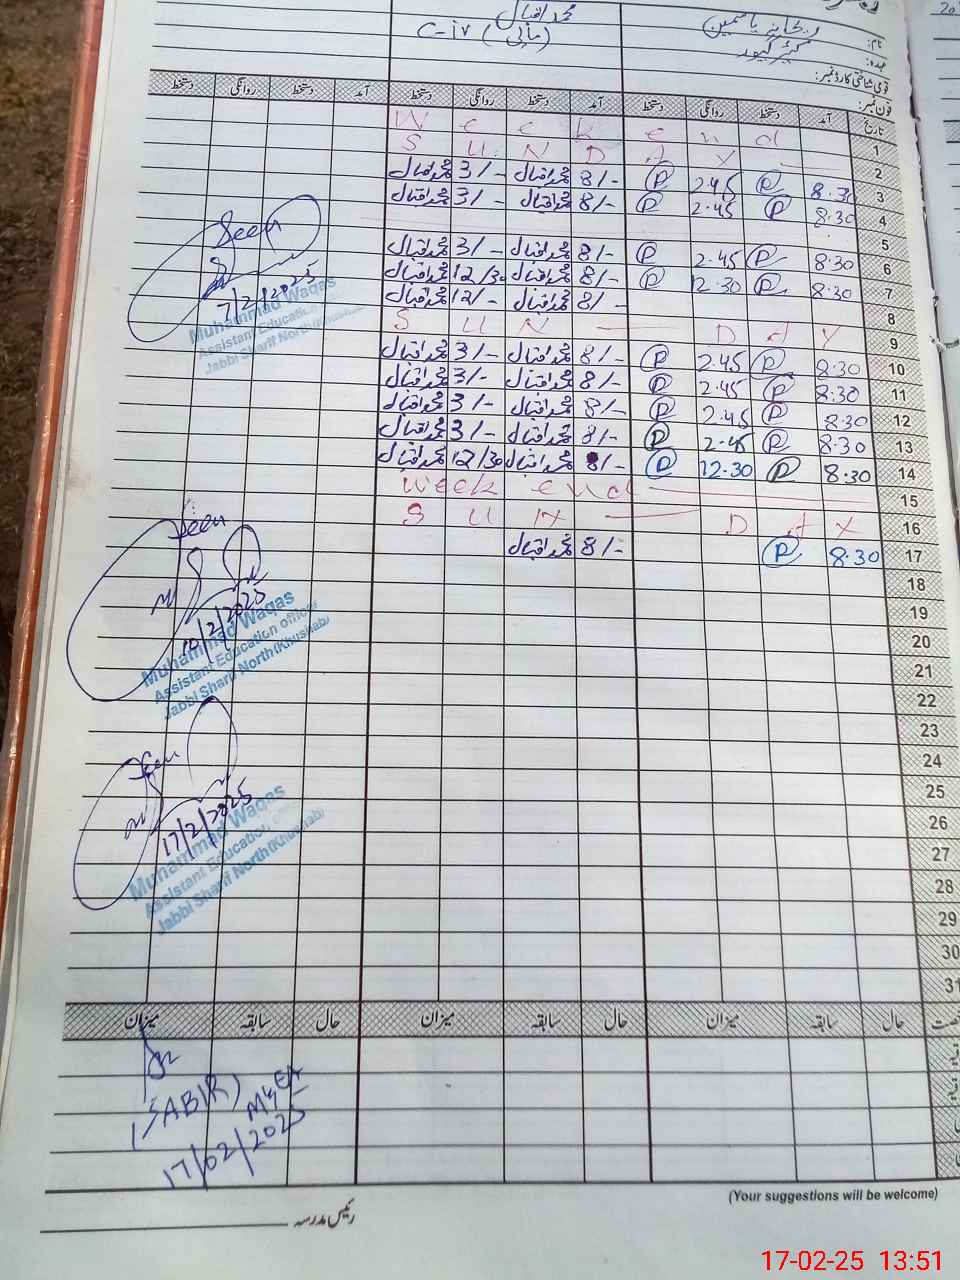 نام: ریحانہ یاسمین محمد اقبال
عہدہ: کیئر گیور (مالی) C-iv
قومی شناختی کارڈ نمبر:
فون نمبر:
تاریخ آمد دستخط روانگی دستخط آمد دستخط روانگی دستخط آمد دستخط روانگی دستخط
1 W e e k e n d
2 S U N D A Y
3 8.30 P 2.45 P 8/- محمد اقبال 3/- محمد اقبال
4 8.30 P 2.45 P 8/- محمد اقبال 3/- محمد اقبال
5
6 8.30 P 2.45 P 8/- محمد اقبال 3/- محمد اقبال
7 8.30 P 12.30 P 8/- محمد اقبال 12/30 محمد اقبال
8 8/- محمد اقبال 12/- محمد اقبال
9 S U N — D A Y
10 8.30 P 2.45 P 8/- محمد اقبال 3/- محمد اقبال
11 8.30 P 2.45 P 8/- محمد اقبال 3/- محمد اقبال
12 8.30 P 2.45 P 8/- محمد اقبال 3/- محمد اقبال
13 8.30 P 2.45 P 8/- محمد اقبال 3/- محمد اقبال
14 8.30 P 12.30 P 8/- محمد اقبال 12/30 محمد اقبال
15 Week end
16 S U N — D A Y
17 8.30 P 8/- محمد اقبال
18
19
20
21
22
23
24
25
26
27
28
29
30
31
Seen
7/2/2025
Muhammad Waqas
Assistant Education
Jabbi Sharif North (Khushab)
Seen
10/2/2025
Muhammad Waqas
Assistant Education officer
Jabbi Sharif North (Khushab)
Seen
17/2/2025
Muhammad Waqas
Assistant Education officer
Jabbi Sharif North (Khushab)
حال سابقہ میزان حال سابقہ میزان حال سابقہ میزان
(SABIR)
MEA
17/02/2025
(Your suggestions will be welcome)
رئیس مدرسہ
17-02-25 13:51